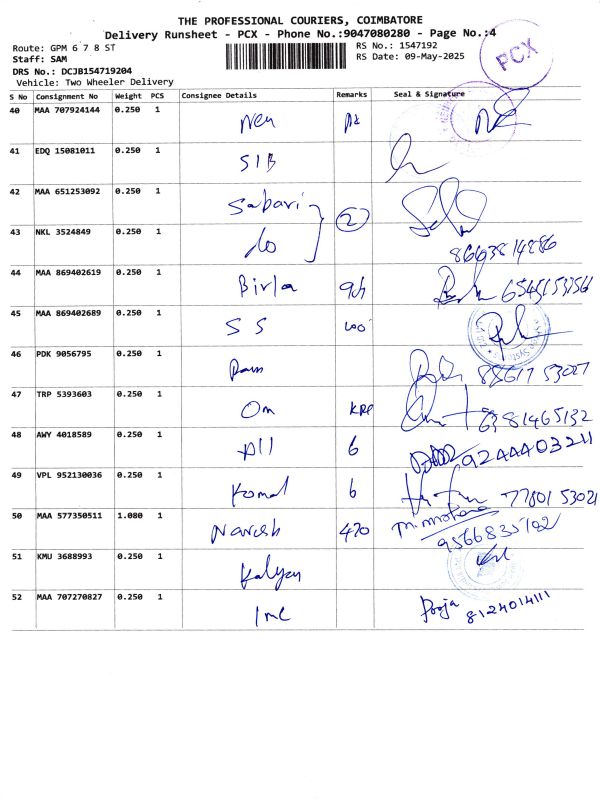 THE PROFESSIONAL COURIERS, COIMBATORE
Delivery Runsheet - PCX - Phone No.:9047080280 - Page No.:4
Route: GPM 6 7 8 ST
RS No.: 1547192
Staff: SAM
RS Date: 09-May-2025
PCX
DRS No.: DCJB154719204
Vehicle: Two Wheeler Delivery
S No Consignment No Weight PCS Consignee Details Remarks Seal & Signature
40 MAA 707924144 0.250 1
41 EDQ 15081011 0.250 1 SIB
42 MAA 651253092 0.250 1 Sabari 2
43 NKL 3524849 0.250 1
44 MAA 869402619 0.250 1 Birla
45 MAA 869402689 0.250 1 S S
46 PDK 9056795 0.250 1 Ram 88617 53027
47 TRP 5393603 0.250 1 Om KRP 6381465132
48 AWY 4018589 0.250 1 6 9244403211
49 VPL 952130036 0.250 1 Komal 6 77801 53021
50 MAA 577350511 1.080 1 Naresh 470
51 KMU 3688993 0.250 1 Kalyan
52 MAA 707270827 0.250 1 Pooja 8124014111